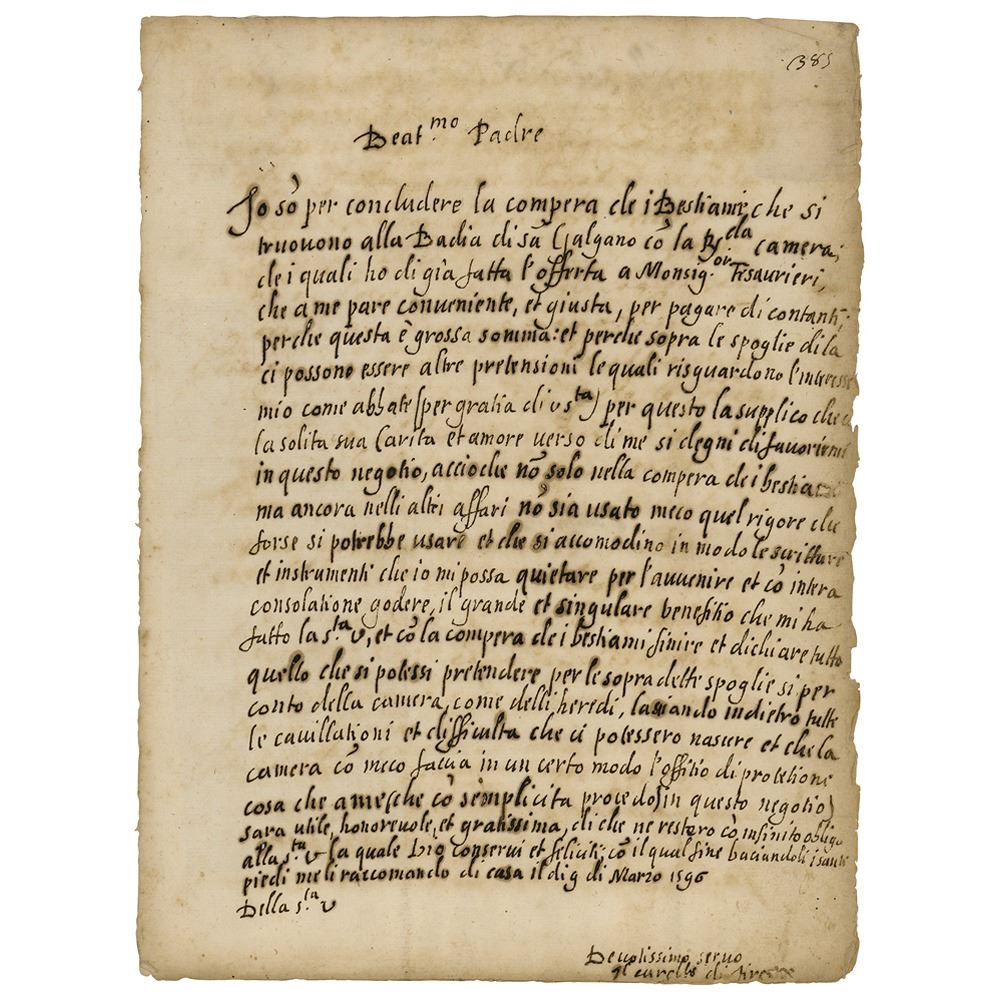 1385
Beat.mo Padre
Io sò per concludere la compera de i Bestiami, che si
truouono alla Badia di sã Galgano cõ la R.da camera,
de i quali ho di già fatta l'offerta a Monsig.or Tesaurieri,
che a me pare conueniente, et giusta, per pagare di contanti,
perche questa è grossa somma: et perche sopra le spoglie di la
ci possono essere altre pretensioni le quali risguardono l'interesse
mio come abbate (per gratia di v s.ta) per questo la supplico che
la solita sua Carita et amore verso di me si degni di fauorirmi
in questo negotio, accioche nõ solo nella compera de i bestiami
ma ancora nelli altri affari nõ sia usato meco quel rigore che
forse si potrebbe usare et che si accomodino in modo le scritture
et instrumenti che io mi possa quietare per l'auuenire et cõ intera
consolatione godere, il grande et singulare benefitio che mi ha
fatto la s.ta v, et cõ la compera de i bestiami finire et dichiare tutto
quello che si potessi pretendere per le sopradette spoglie si per
conto della camera, come delli heredi, lasciando indietro tutte
le cauillationi et difficulta che ci potessero nascere et che la
camera cõ meco faccia in un certo modo l'offitio di protetione
cosa che a me (che cõ semplicita procedo in questo negotio)
sara utile, honoreuole, et gratissima, di che ne restero cõ infinito obligo
alla s.ta v la quale Dio conserui et feliciti, cõ il qual fine baciandoli i santi
piedi me li raccomando di casa il di 9 di Marzo 1596
Della s.ta v
Deuotissimo seruo
Il di